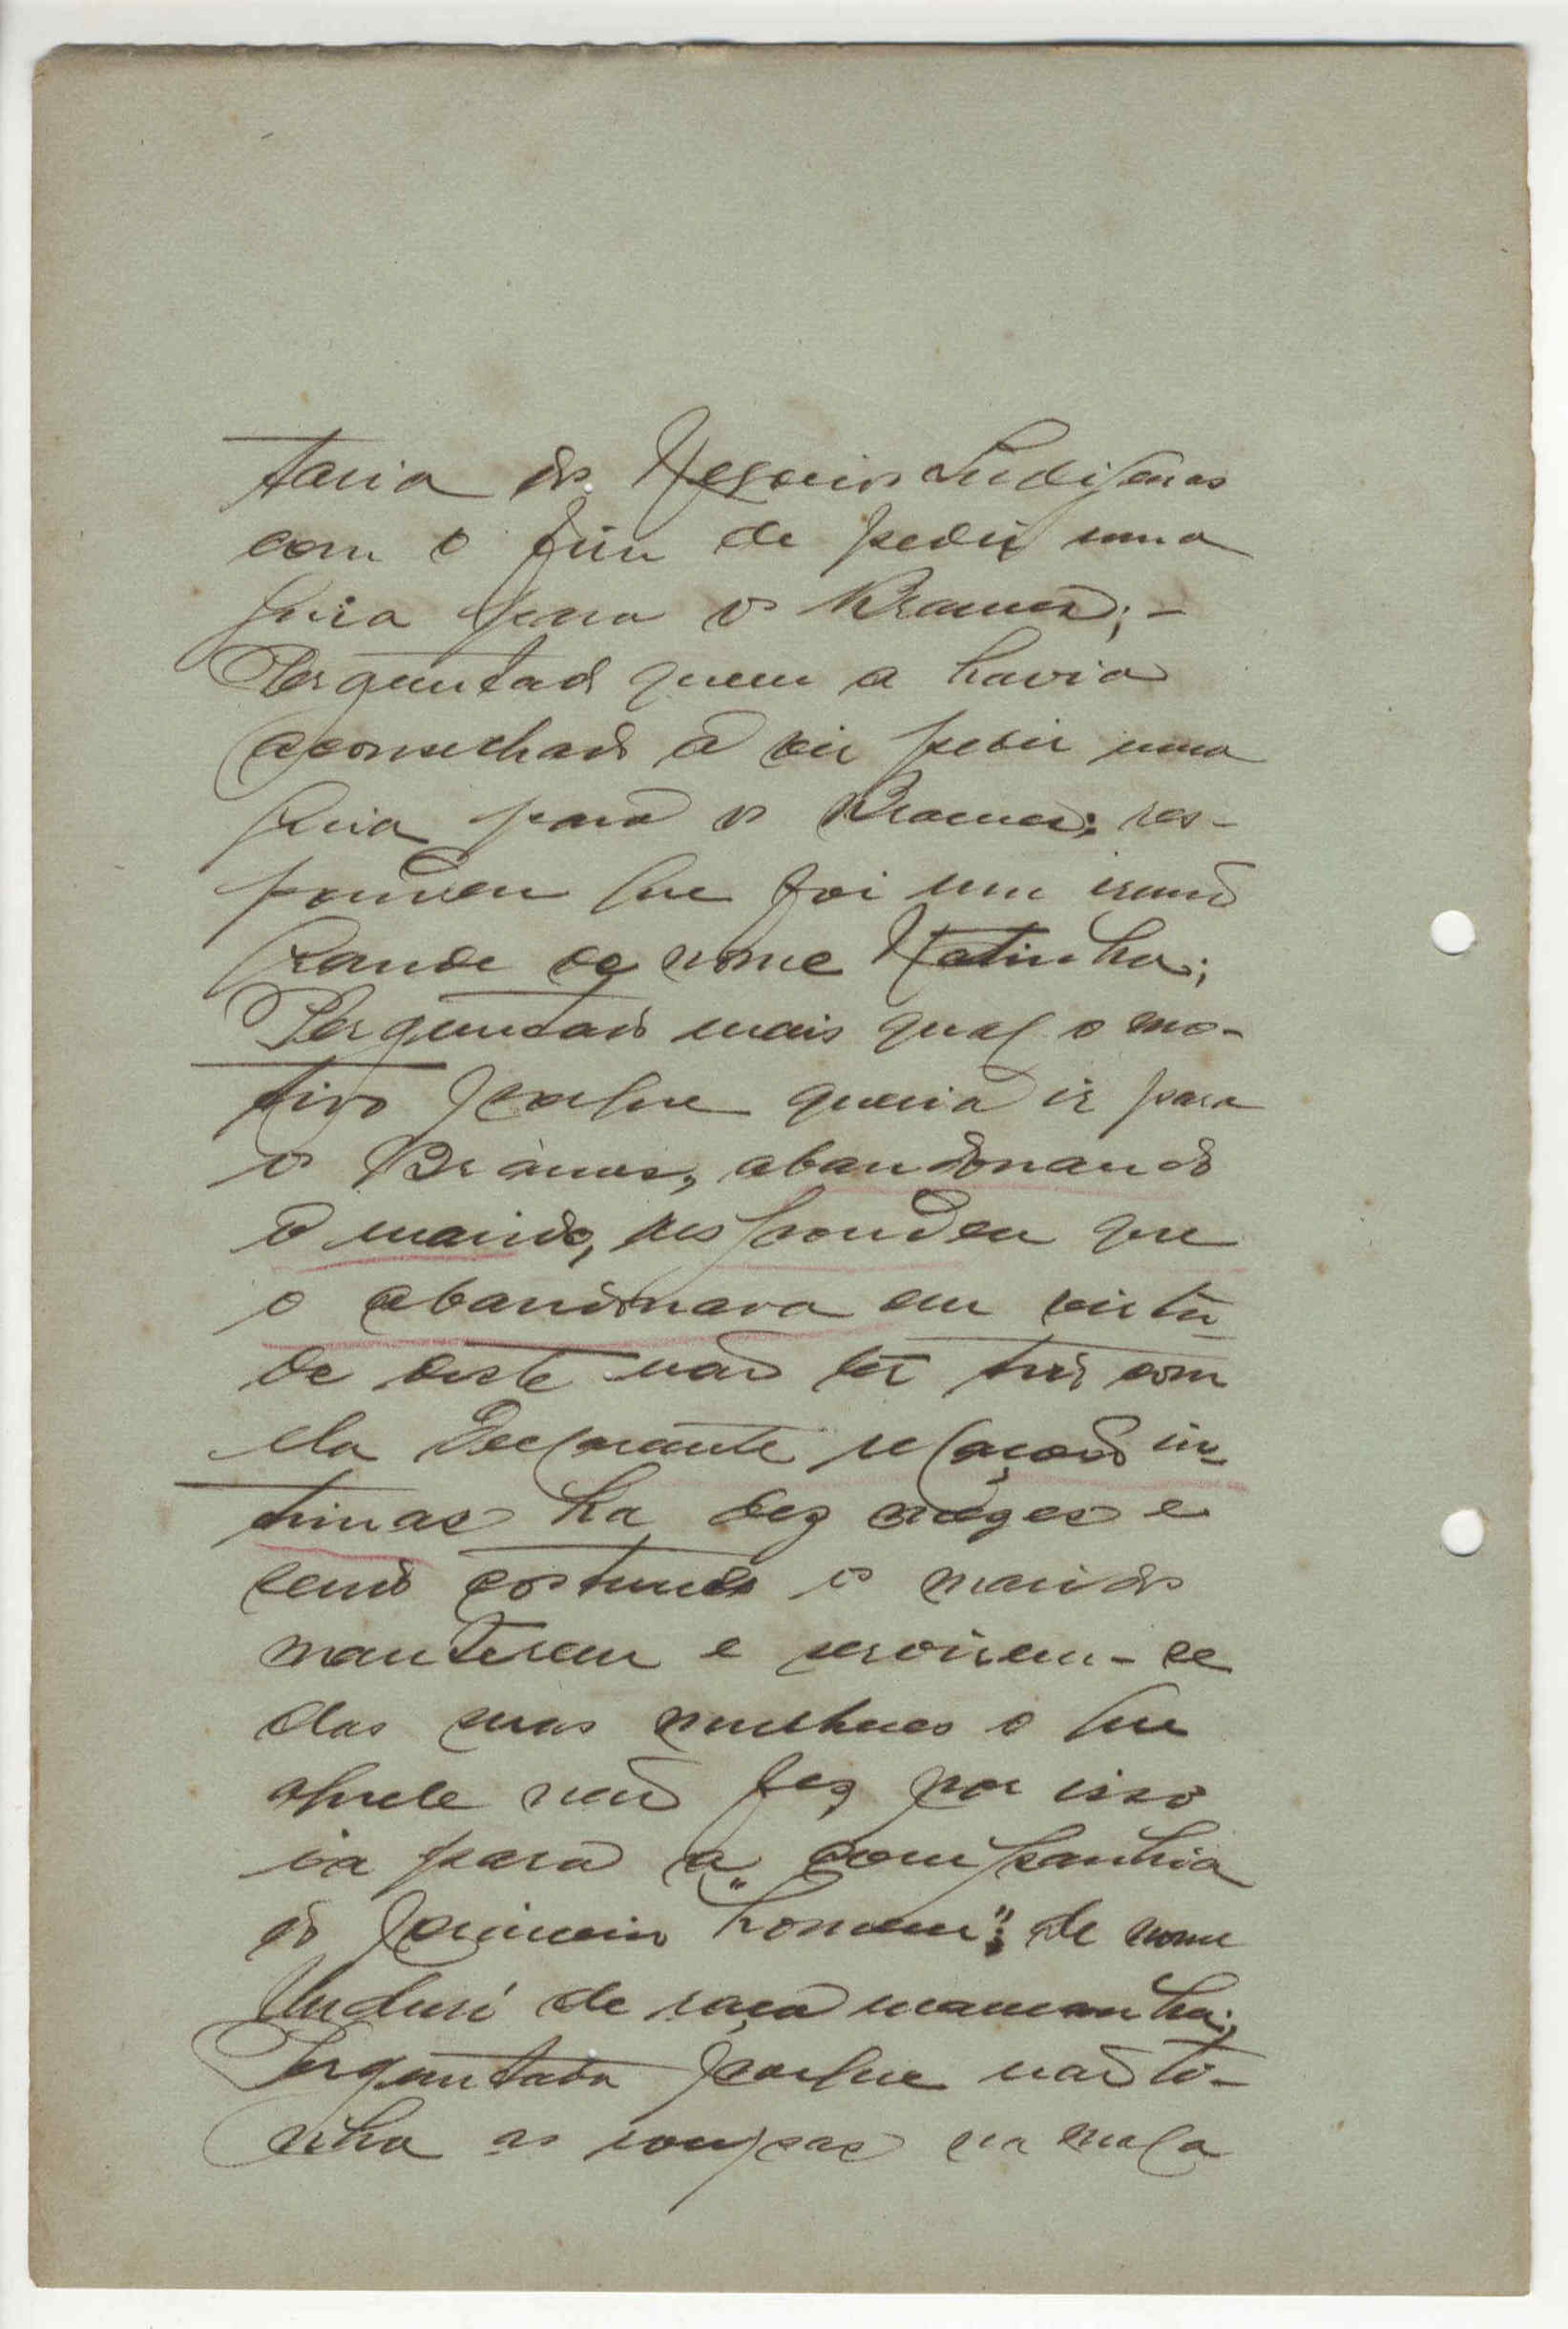 taria dos Negocios Indigenas
com o fim de pedir uma
guia para o Brames; -
Perguntado quem a havia
aconselhado a vir pedir uma
guia para o Brames; res-
pondeu que foi um irmão
grande de nome Natinha;
Perguntado mais qual o mo-
tivo porque queria ir para
o Brames, abandonando
o marido, respondeu que
o abandonara em virtu-
de deste não ter tido com
ela declarante relações in-
timas ha dez mezes e
sendo costume os maridos
manterem e servirem-se
das suas mulheres o que
aquele não fez por isso
ia para a companhia
do primeiro "homem"; de nome
de raça
Perguntada porque não ti-
nha as roupas na mala